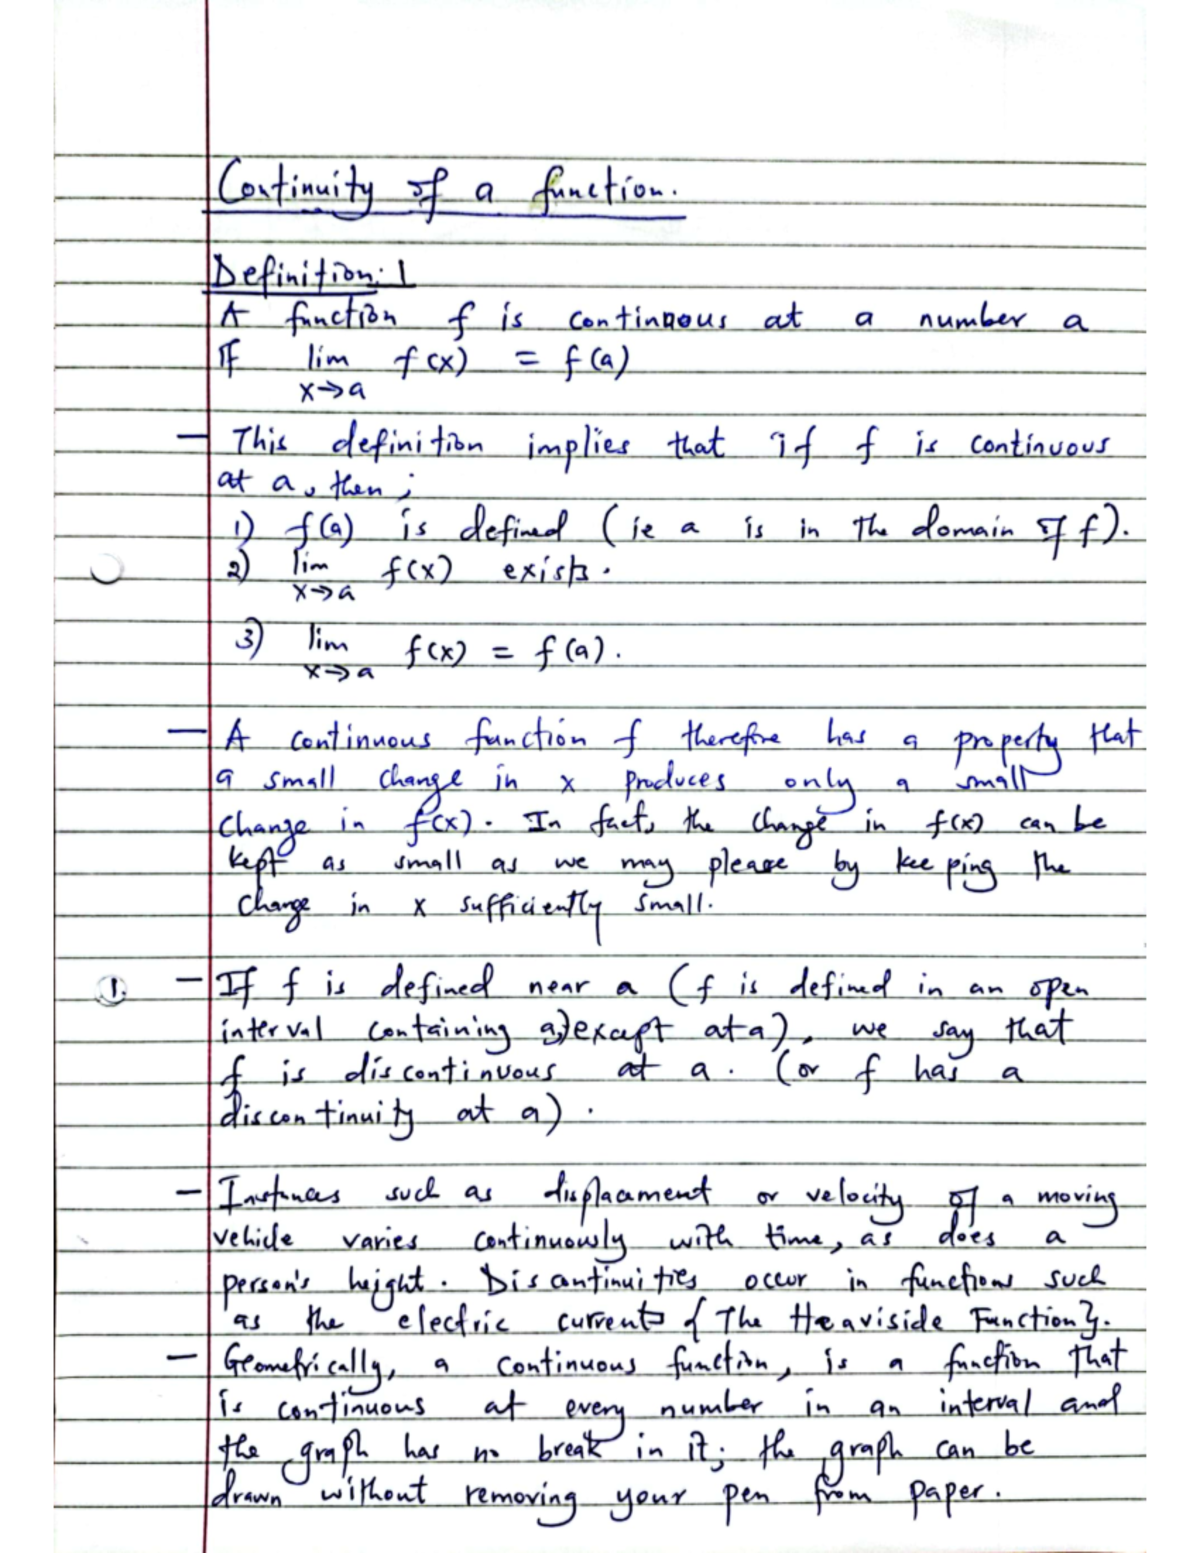 Continuity of a function.
Definition: 1
A function f is continuous at a number a
if lim f(x) = f(a)
x→a
— This definition implies that if f is continuous
at a, then ;
1) f(a) is defined (ie a is in the domain of f).
2) lim f(x) exists.
x→a
3) lim f(x) = f(a).
x→a
— A continuous function f therefore has a property that
a small change in x produces only a small
change in f(x). In fact, the change in f(x) can be
kept as small as we may please by keeping the
change in x sufficiently small.
1. — If f is defined near a (f is defined in an open
interval containing a,) except at a), we say that
f is discontinuous at a. (or f has a
discontinuity at a).
— Instances such as displacement or velocity of a moving
vehicle varies continuously with time, as does a
person's height. Discontinuities occur in functions such
as the electric current {The Heaviside Function}.
— Geometrically, a continuous function, is a function that
is continuous at every number in an interval and
the graph has no break in it; the graph can be
drawn without removing your pen from paper.